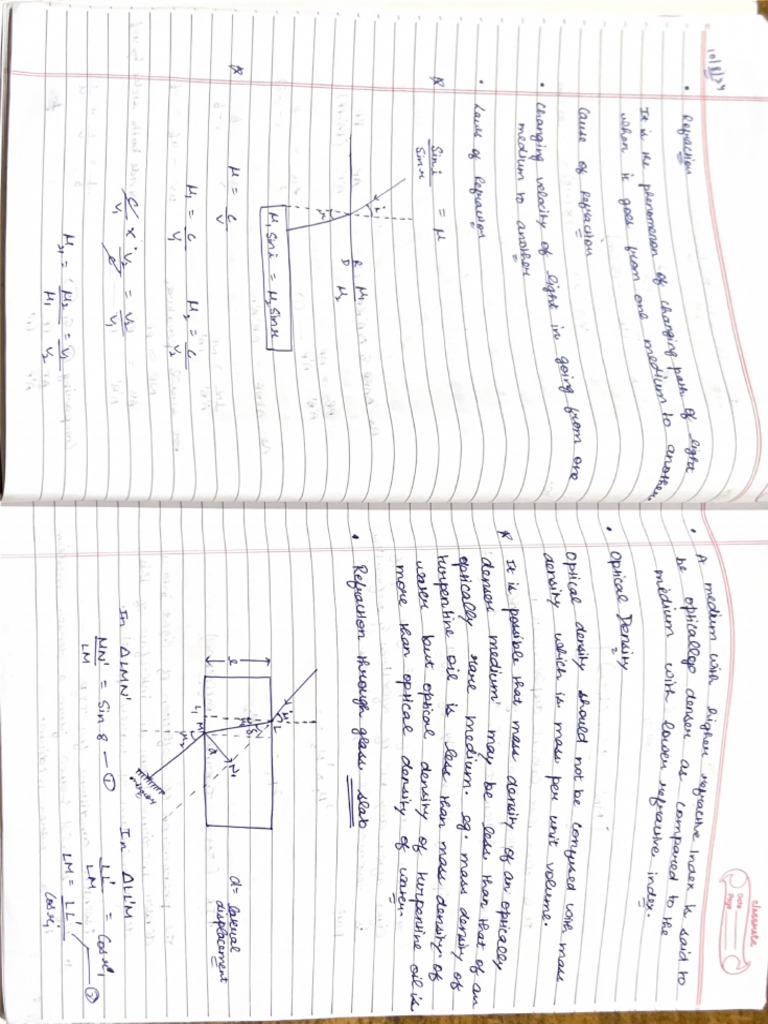 10/8/24
• Refraction
It is the phenomenon of changing path of light
when it goes from one medium to another.
Cause of Refraction
• Changing velocity of light in going from one
medium to another
• Laws of Refraction
* Sin i / Sin r = μ
i
R μ1
D μ2
r
μ1 Sin i = μ2 Sin r
* μ = c/v
μ1 = c/v1 μ2 = c/v2
c/v1 × v2/c = v2/v1
μ21 = μ2/μ1 = v1/v2
classmate
Date
Page
• A medium with higher refractive index is said to
be optically denser as compared to the
medium with lower refractive index.
• Optical Density
Optical density should not be confused with mass
density which is mass per unit volume.
* It is possible that mass density of an optically
denser medium may be less than that of an
optically rare medium. eg. mass density of
turpentine oil is less than mass density of
water but optical density of turpentine oil is
more than optical density of water.
• Refraction through glass slab
d = lateral
displacement
In ΔLMN'
MN'/LM = Sin δ — ①
In ΔLL'M
LL'/LM = Cos r1
LM = LL'/Cos r1 — ②